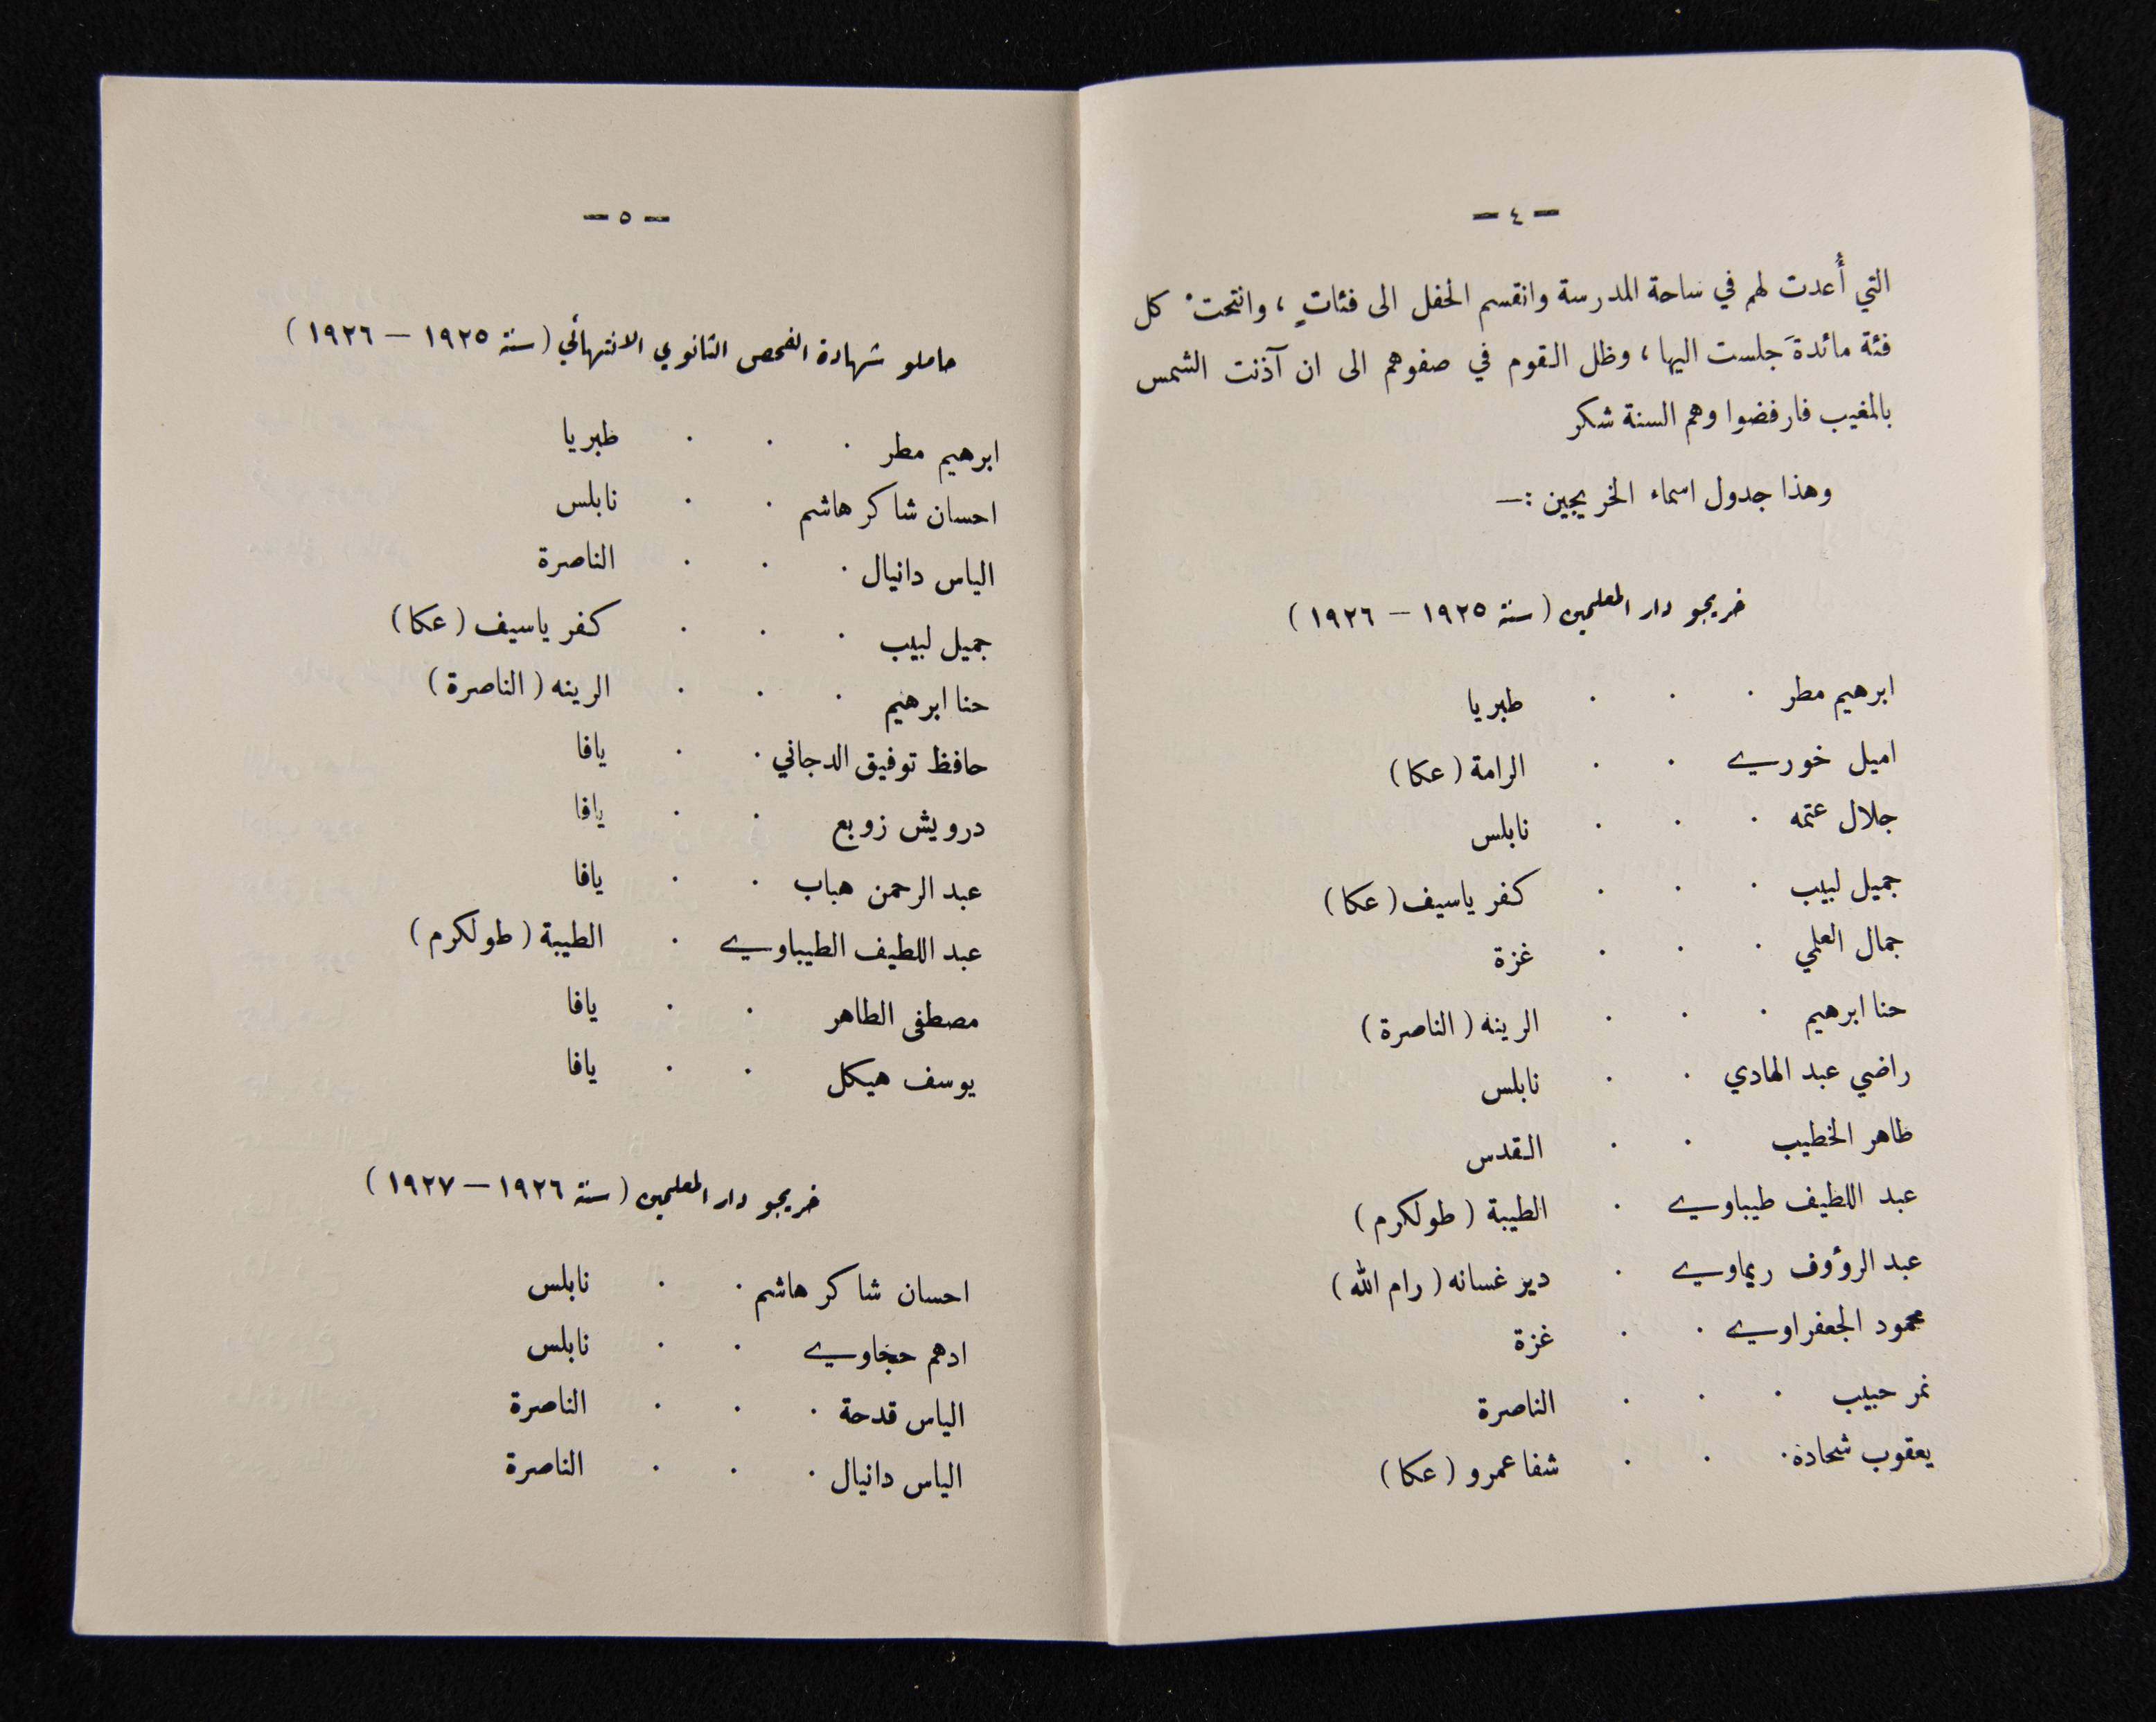 — ٤ —
التي أُعدت لهم في ساحة المدرسة وانقسم الحفل الى فئاتٍ ، وانتحتْ كل
فئة مائدةَ جلست اليها ، وظل القوم في صفوهم الى ان آذنت الشمس
بالمغيب فارفضوا وهم السنة شكر
وهذا جدول اسماء الخريجين :—
خريجو دار المعلمين (سنة ١٩٢٥ — ١٩٢٦)
ابرهيم مطر . . . طبريا
اميل خوري . . الرامة (عكا)
جلال عتمه . . . نابلس
جميل لبيب . . . كفر ياسيف (عكا)
جمال العلمي . . . غزة
حنا ابرهيم . . . الرينه (الناصرة)
راضي عبد الهادي . . نابلس
طاهر الخطيب . . القدس
عبد اللطيف طيباوي . الطيبة (طولكرم)
عبد الرؤوف ريماوي . دير غسانه (رام الله)
محمود الجعفراوي . . غزة
نمر حبيب . . . الناصرة
يعقوب شحادة . . . شفا عمرو (عكا)
— ٥ —
حاملو شهادة الفحص الثانوي الانتهائي (سنة ١٩٢٥ — ١٩٢٦)
ابرهيم مطر . . . طبريا
احسان شاكر هاشم . . نابلس
الياس دانيال . . . الناصرة
جميل لبيب . . . كفر ياسيف (عكا)
حنا ابرهيم . . . الرينه (الناصرة)
حافظ توفيق الدجاني . . يافا
درويش زويع . . يافا
عبد الرحمن هباب . . يافا
عبد اللطيف الطيباوي . الطيبة (طولكرم)
مصطفى الطاهر . . يافا
يوسف هيكل . . يافا
خريجو دار المعلمين (سنة ١٩٢٦ — ١٩٢٧)
احسان شاكر هاشم . . نابلس
ادهم حجاوي . . نابلس
الياس قدحة . . . الناصرة
الياس دانيال . . . الناصرة